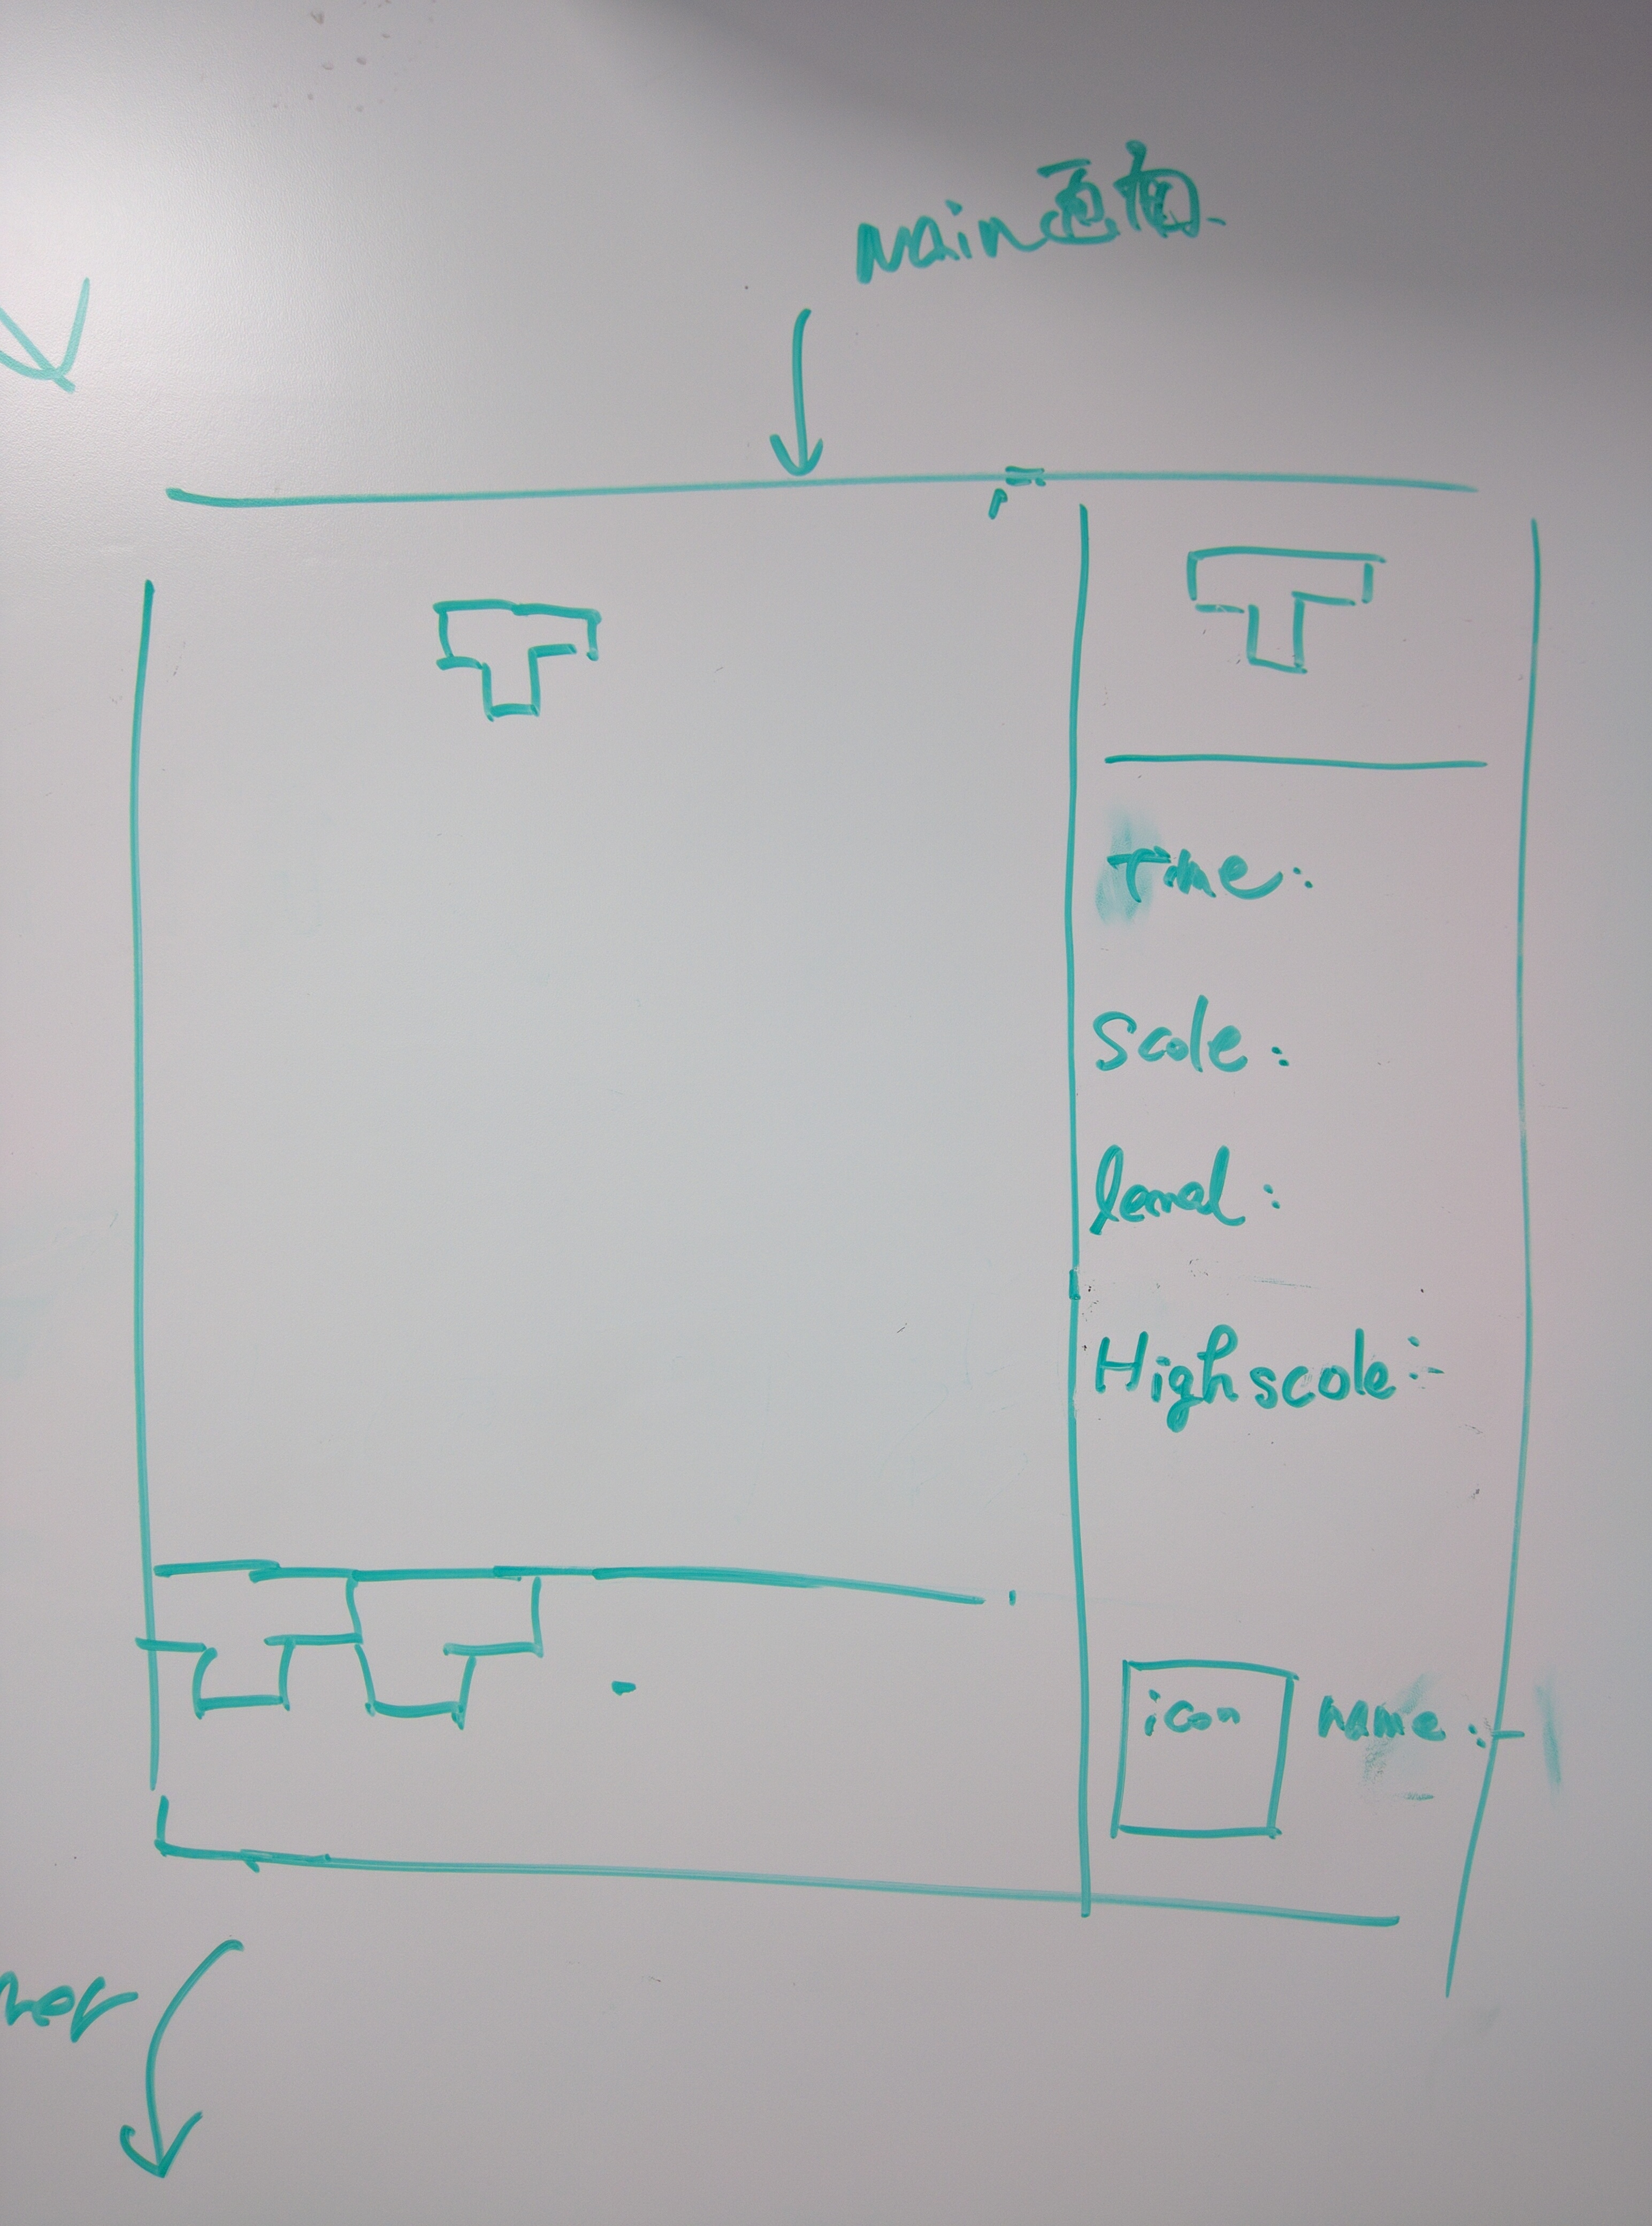 main画面
Time:
Scole:
lavel:
High scole:
icon name: